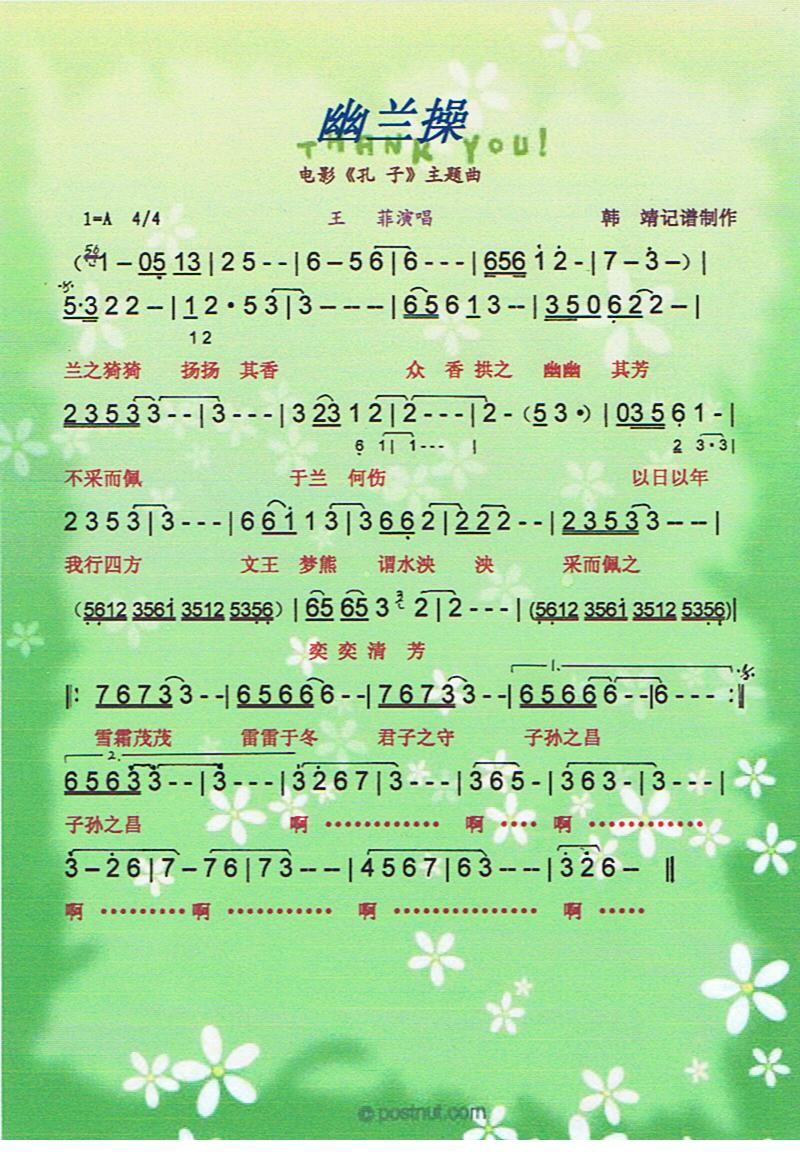 幽兰操
THANK YOU!
电影《孔 子》主题曲
1=A 4/4 王 菲演唱 韩 靖记谱制作
(56 1 – 05 13 | 2 5 - - | 6 – 5 6 | 6 - - - | 656 1 2 - | 7 – 3 –) |
5·3 2 2 – | 1 2 • 5 3 | 3 – – – | 65 6 1 3 – – | 350 622 – |
1 2
兰之猗猗 扬扬 其香 众 香 拱之 幽幽 其芳
2353 3 - - | 3 - - - | 3 23 1 2 | 2 - - - | 2 - (5 3 •) | 035 6 1 - |
6 1 | 1 - - - | 2 3 • 3 |
不采而佩 于兰 何伤 以日以年
2 3 5 3 | 3 - - - | 6 61 1 3 | 3 66 2 | 222 - - | 2353 3 – – |
我行四方 文王 梦熊 谓水泱 泱 采而佩之
(5612 3561 3512 5356) | 65 65 3 3 2 | 2 - - - | (5612 3561 3512 5356) |
奕 奕 清 芳
1.
‖: 7673 3 - - | 6566 6 - - | 7673 3 - - | 6566 6 - - | 6 - - - :‖
雪霜茂茂 雷雷于冬 君子之守 子孙之昌
2.
6563 3 - - | 3 - - - | 3 2 6 7 | 3 - - - | 3 6 5 - | 3 6 3 - | 3 - - - |
子孙之昌 啊 ············ 啊 ···· 啊 ············
3 – 2 6 | 7 – 7 6 | 7 3 – – | 4 5 6 7 | 6 3 – – | 3 2 6 – ‖
啊 ········· 啊 ··········· 啊 ··············· 啊 ·····
© postnut.com